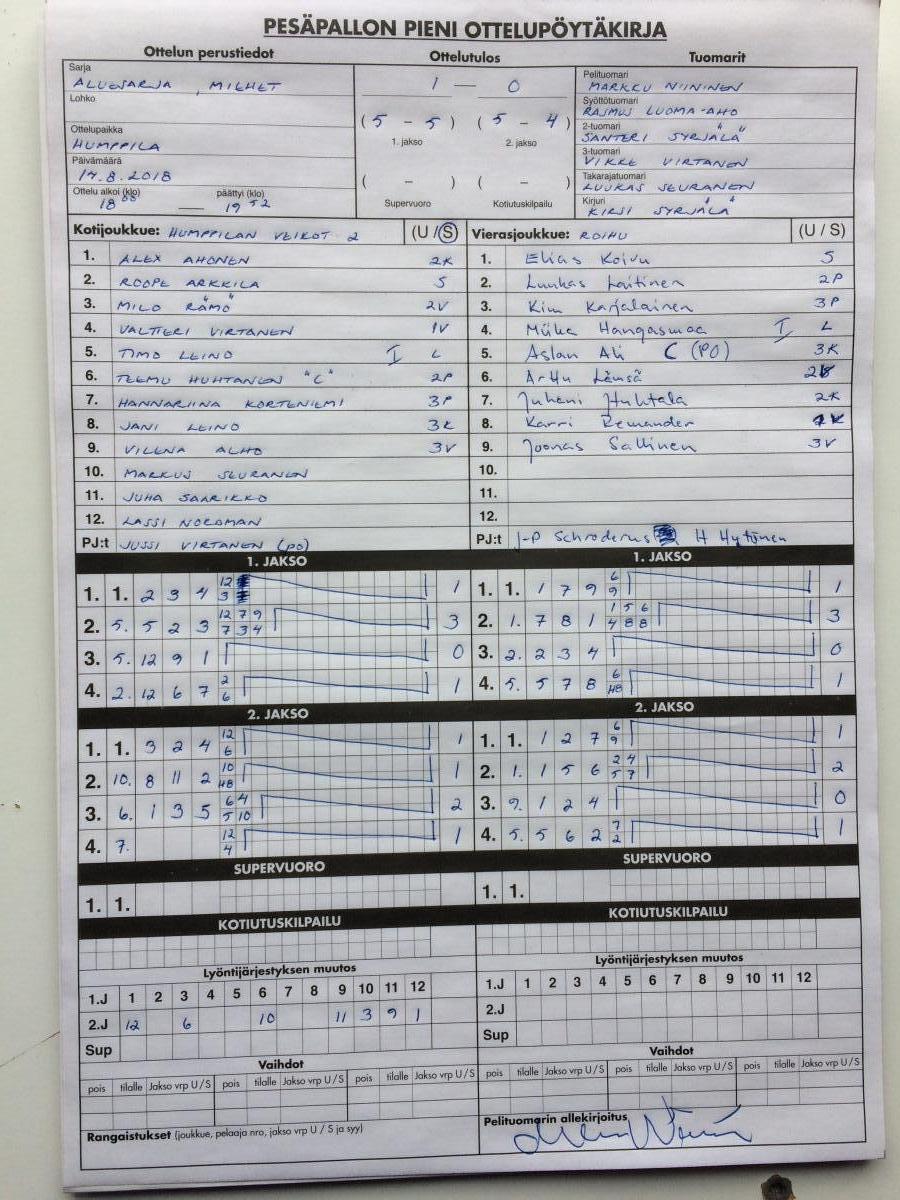 PESÄPALLON PIENI OTTELUPÖYTÄKIRJA
Ottelun perustiedot
Sarja
ALUESARJA, MIEHET
Lohko
Ottelupaikka
HUMPPILA
Päivämäärä
14.8.2018
Ottelu alkoi (klo) päättyi (klo)
18 00 — 19 52
Ottelutulos
1 — 0
(5 - 5) (5 - 4)
1. jakso 2. jakso
( - ) ( - )
Supervuoro Kotiutuskilpailu
Tuomarit
Pelituomari
MARKKU NIININEN
Syöttötuomari
RASMUS LUOMA-AHO
2-tuomari
SANTERI SYRJÄLÄ
3-tuomari
VIKKE VIRTANEN
Takarajatuomari
LUUKAS SEURANEN
Kirjuri
KIRSI SYRJÄLÄ
Kotijoukkue: HUMPPILAN VEIKOT 2 (U / S)
1. ALEX AHONEN 2K
2. ROOPE ARKKILA S
3. MILO RÄMÖ 2V
4. VALTTERI VIRTANEN 1V
5. TIMO LEINO I L
6. TEEMU HUHTANEN "C" 2P
7. HANNARIINA KORTENIEMI 3P
8. JANI LEINO 3K
9. VILENA ALHO 3V
10. MARKUS SEURANEN
11. JUHA SAARIKKO
12. LASSI NORDMAN
PJ:t JUSSI VIRTANEN (PO)
Vierasjoukkue: ROIHU (U / S)
1. Elias Koivu S
2. Luukas Laitinen 2P
3. Kim Karjalainen 3P
4. Miika Hangasmaa I L
5. Aslan Ali C (PO) 3K
6. Arttu Länsä
7. Juhani Huhtala 2K
8. Karri Remander
9. Joonas Sallinen 3V
10.
11.
12.
PJ:t J-P Schroderus H Hytönen
1. JAKSO
1. 1. 2 3 4 12 3 1
2. 5. 5 2 3 12 7 9 7 3 4 3
3. 5. 12 9 1 0
4. 2. 12 6 7 2 6 1
2. JAKSO
1. 1. 3 2 4 12 6 1
2. 10. 8 11 2 10 48 1
3. 6. 1 3 5 6 4 5 10 2
4. 7. 12 4 1
SUPERVUORO
1. 1.
KOTIUTUSKILPAILU
Lyöntijärjestyksen muutos
1.J 1 2 3 4 5 6 7 8 9 10 11 12
2.J 12 6 10 11 3 9 1
Sup
Vaihdot
pois tilalle Jakso vrp U / S pois tilalle Jakso vrp U / S pois tilalle Jakso vrp U / S
Rangaistukset (joukkue, pelaaja nro, jakso vrp U / S ja syy)
1. JAKSO
1. 1. 1 7 9 6 9 1
2. 1. 7 8 1 1 5 6 4 8 8 3
3. 2. 2 3 4 0
4. 5. 5 7 8 6 48 1
2. JAKSO
1. 1. 1 2 7 6 9 1
2. 1. 1 5 6 2 4 5 7 2
3. 9. 1 2 4 0
4. 5. 5 6 2 7 2 1
SUPERVUORO
1. 1.
KOTIUTUSKILPAILU
Lyöntijärjestyksen muutos
1.J 1 2 3 4 5 6 7 8 9 10 11 12
2.J
Sup
Vaihdot
pois tilalle Jakso vrp U / S pois tilalle Jakso vrp U / S pois tilalle Jakso vrp U / S
Pelituomarin allekirjoitus